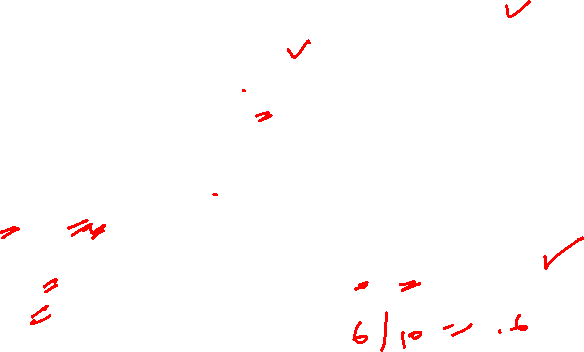 6/10 = .6